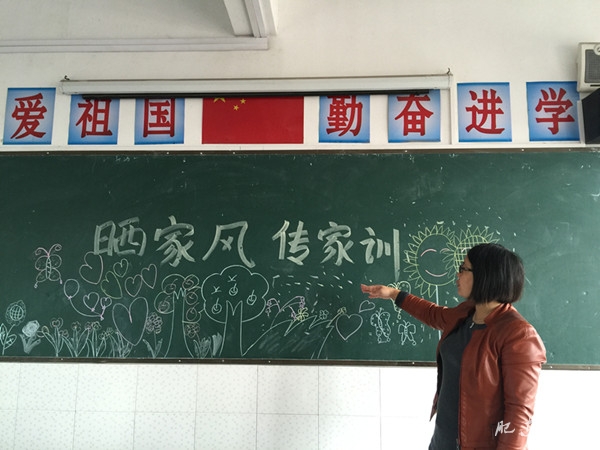 爱祖国 勤奋进学
晒家风 传家训